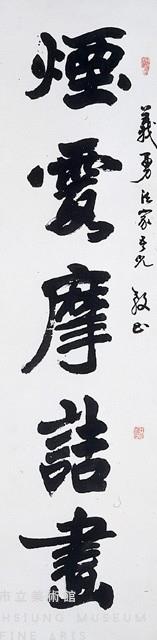 煙雲摩詰畫
義勇法家吾兄 教正
市立美術館
HSIUNG MUSEUM
FINE ARTS